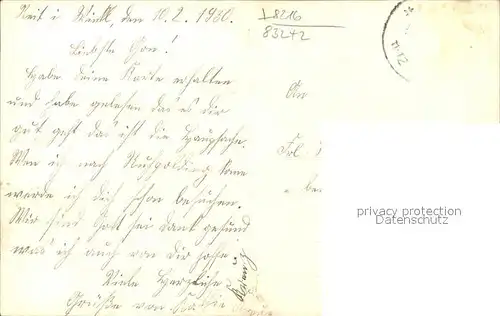 Reit i Winkl, den 10.2.1930.
18216
83272
Liebste Gon!
Habe deine Karte erhalten
und habe gelesen das es dir
gut geht das ist die Hauptsache.
Wen ich nach Ruhpolding kome
werde ich dich schon besuchen.
Wir sind Gott sei dank gesund
was ich auch von dir hoffe
Viele herzliche
Grüße von
An
Frl.
privacy protection
Datenschutz
11-12